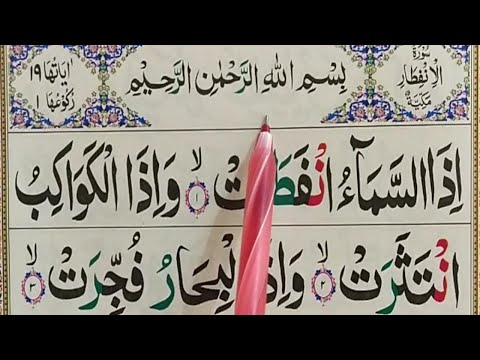 سُوْرَةُ الْاِنْفِطَارِ مَكِّيَّةٌ
بِسْمِ اللّٰهِ الرَّحْمٰنِ الرَّحِيْمِ
اٰيَاتُهَا ١٩
رُكُوْعُهَا ١
اِذَا السَّمَآءُ انْفَطَرَتْ ۙ ١ وَاِذَا الْكَوَاكِبُ
انْتَثَرَتْ ۙ ٢ وَاِذَا الْبِحَارُ فُجِّرَتْ ۙ ٣